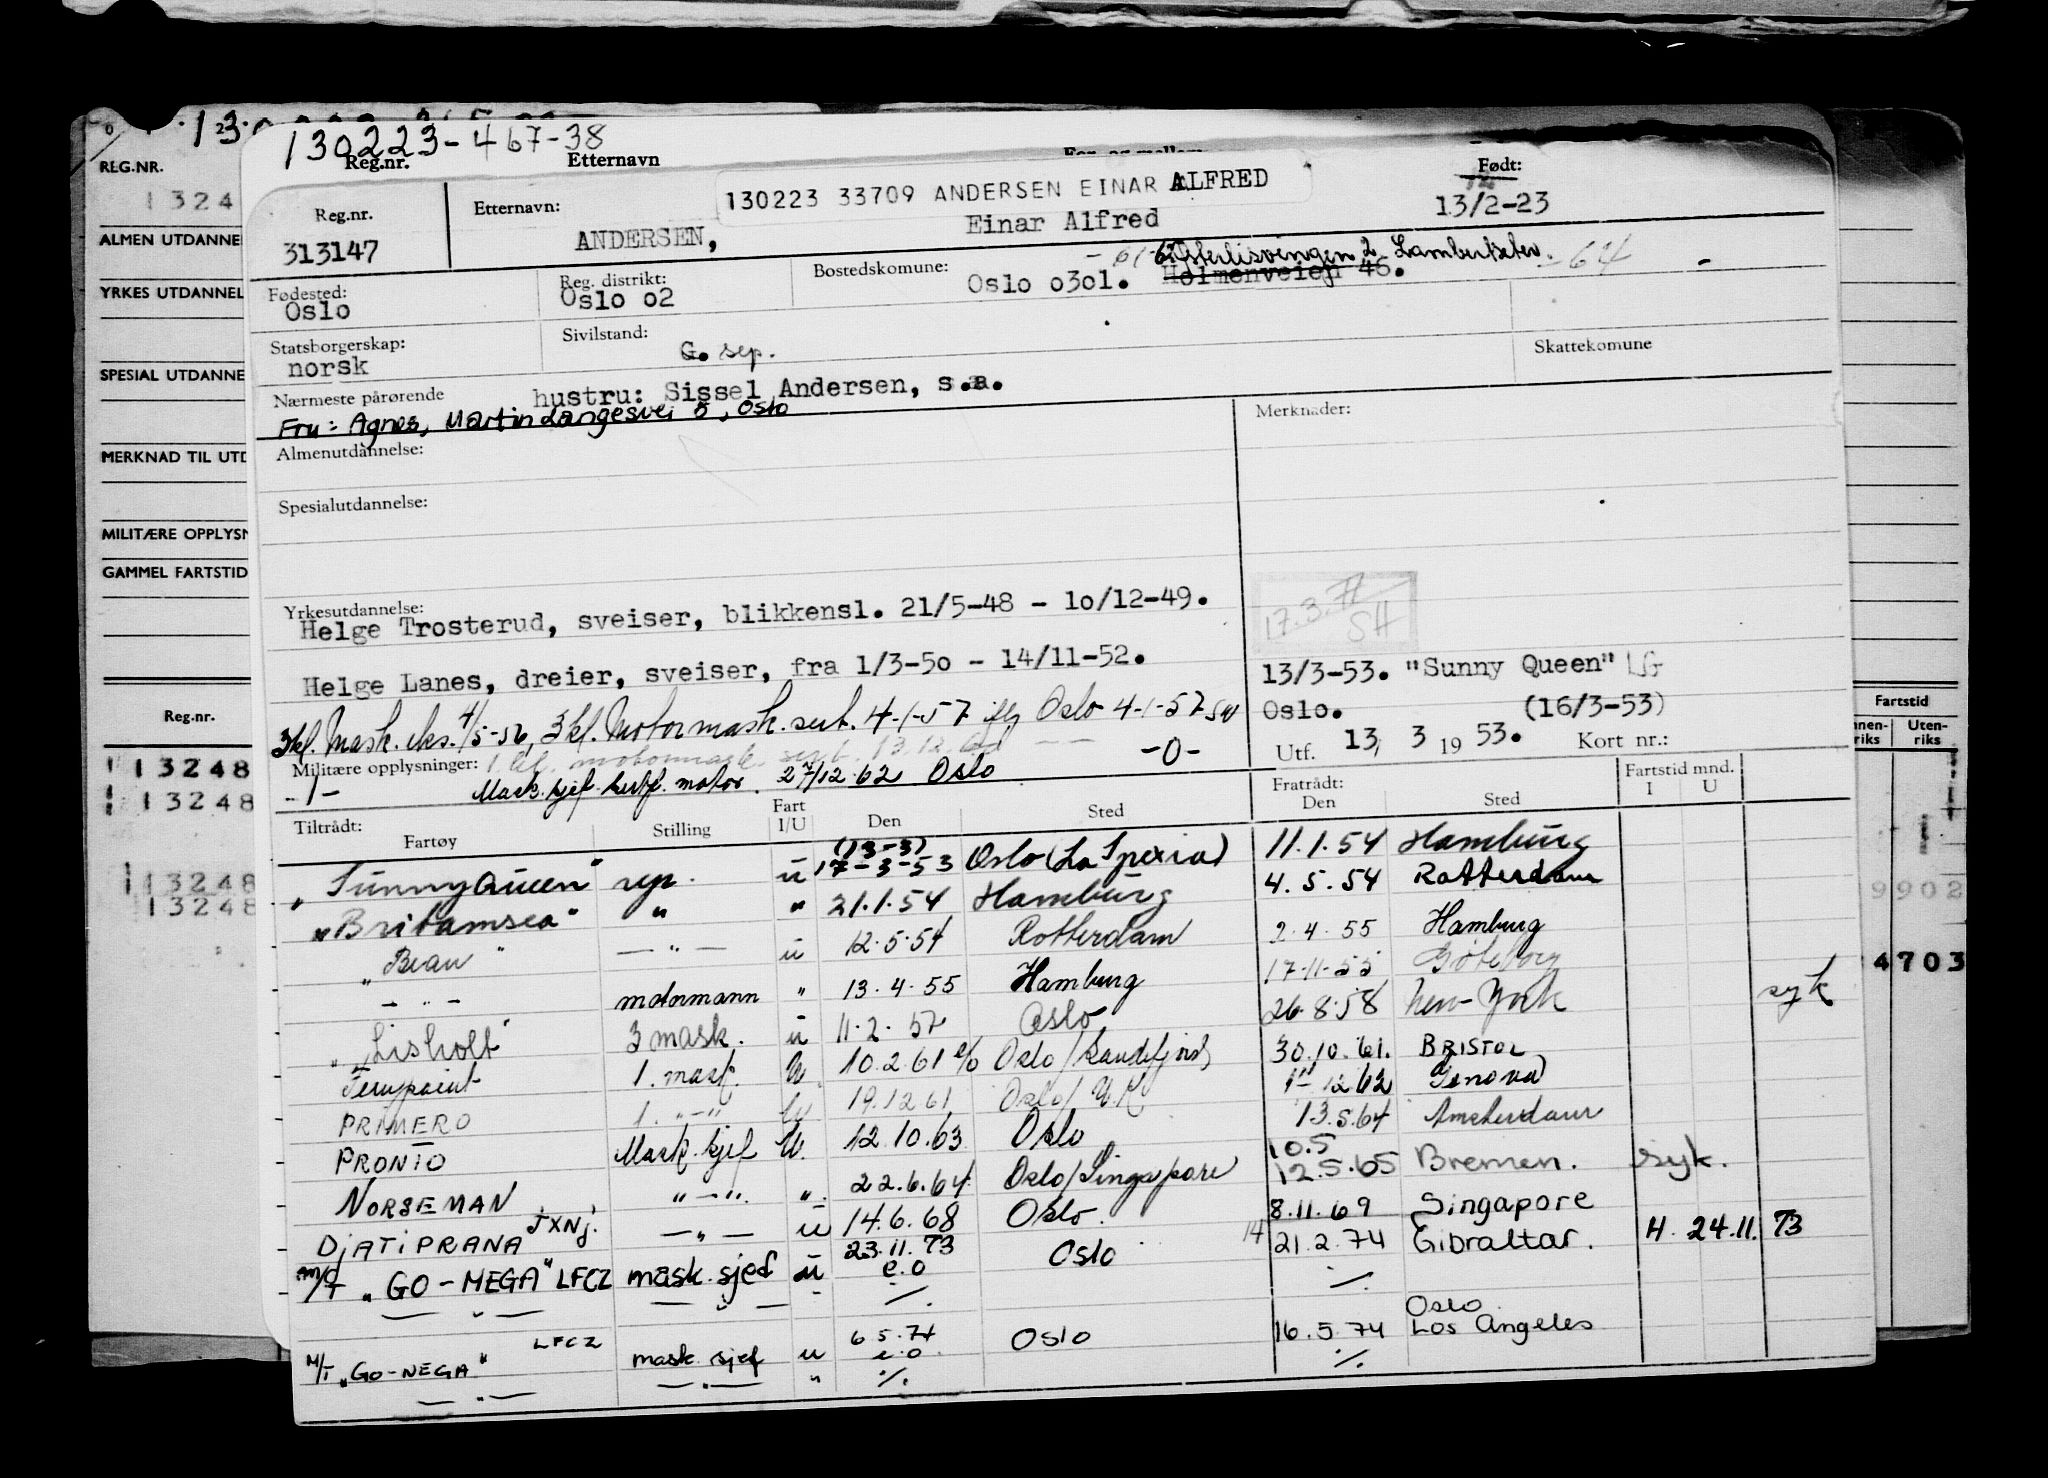 130223-467-38
REG.NR. Reg.nr. Etternavn Født:
1324
130223 33709 ANDERSEN EINAR ALFRED
Reg.nr. Etternavn:
313147 ANDERSEN, Einar Alfred 13/2-23
ALMEN UTDANNE
Østerlisvingen 2 Lambertseter - 64
Fødested: Reg. distrikt: Bostedskomune:
Oslo Oslo o2 Oslo o3o1. Holmenveien 46.
YRKES UTDANNEL
Statsborgerskap: Sivilstand: Skattekomune
norsk G. sep.
SPESIAL UTDANNE
Nærmeste pårørende hustru: Sissel Andersen, s.a.
Fru: Agnes, Martin Langesvei 5, Oslo
Merknader:
MERKNAD TIL UTD
Almenutdannelse:
Spesialutdannelse:
MILITÆRE OPPLYSN
GAMMEL FARTSTID
Yrkesutdannelse:
Helge Trosterud, sveiser, blikkensl. 21/5-48 - 1o/12-49.
17.3.77
SH
Helge Lanes, dreier, sveiser, fra 1/3-5o - 14/11-52.
13/3-53. "Sunny Queen" LG
Oslo. (16/3-53)
3kl. Mask. eks. 4/5-56, 3kl. Motormask. sert. 4-1-57 Oslo 4-1-57
Utf. 13, 3 1953. Kort nr.:
Militære opplysninger: 1 kl. motormask. sert. 13.12.60 -0-
-1- Mask.sjef sertf. motor. 27/12.62 Oslo
Reg.nr. Fartstid
nnen-riks Uten-riks
13248
13248
13248
13248
9902
4703
Tiltrådt: Fratrådt: Fartstid mnd.
Fartøy Stilling Fart I/U Den Sted Den Sted I U
"Sunny Queen" rep. u (13-3) 17-3-53 Oslo (La Spezia) 11.1.54 Hamburg
"Britamsea" " " 21.1.54 Hamburg 4.5.54 Rotterdam
"Beau" — " — u 12.5.54 Rotterdam 2.4.55 Hamburg
— " — motormann " 13.4.55 Hamburg 17.11.55 Göteborg
"Lisholt" 3 mask. u 11.2.57 Oslo 26.8.58 New-York syk
Fernpoint 1. mask. U 10.2.61 Oslo/Sandefjord 30.10.61. BRISTOL
PRIMERO 1. -"- U 19.12.61 Oslo/U.K 12 62 Genova
PRONTO Mask.sjef U. 12.10.63 Oslo 13.5.64 Amsterdam
NORSEMAN "-". ". 22.6.64 Oslo/Singapore 10.5 12.5.65 Bremen. syk.
DJATIPRANA JXNJ. — " — u 14.6.68 Oslo. 8.11.69 Singapore
M/T "GO-MEGA" LFCZ mask.sjef u 23.11.73 e.o Oslo 14 21.2.74 Gibraltar. H. 24.11.73
— " — — " — " ./. ./.
M/T "GO-NEGA" LFCZ mask.sjef u 6 5.74 e.o Oslo 16.5.74 Oslo Los Angeles
— " — — " — " ./. ./.